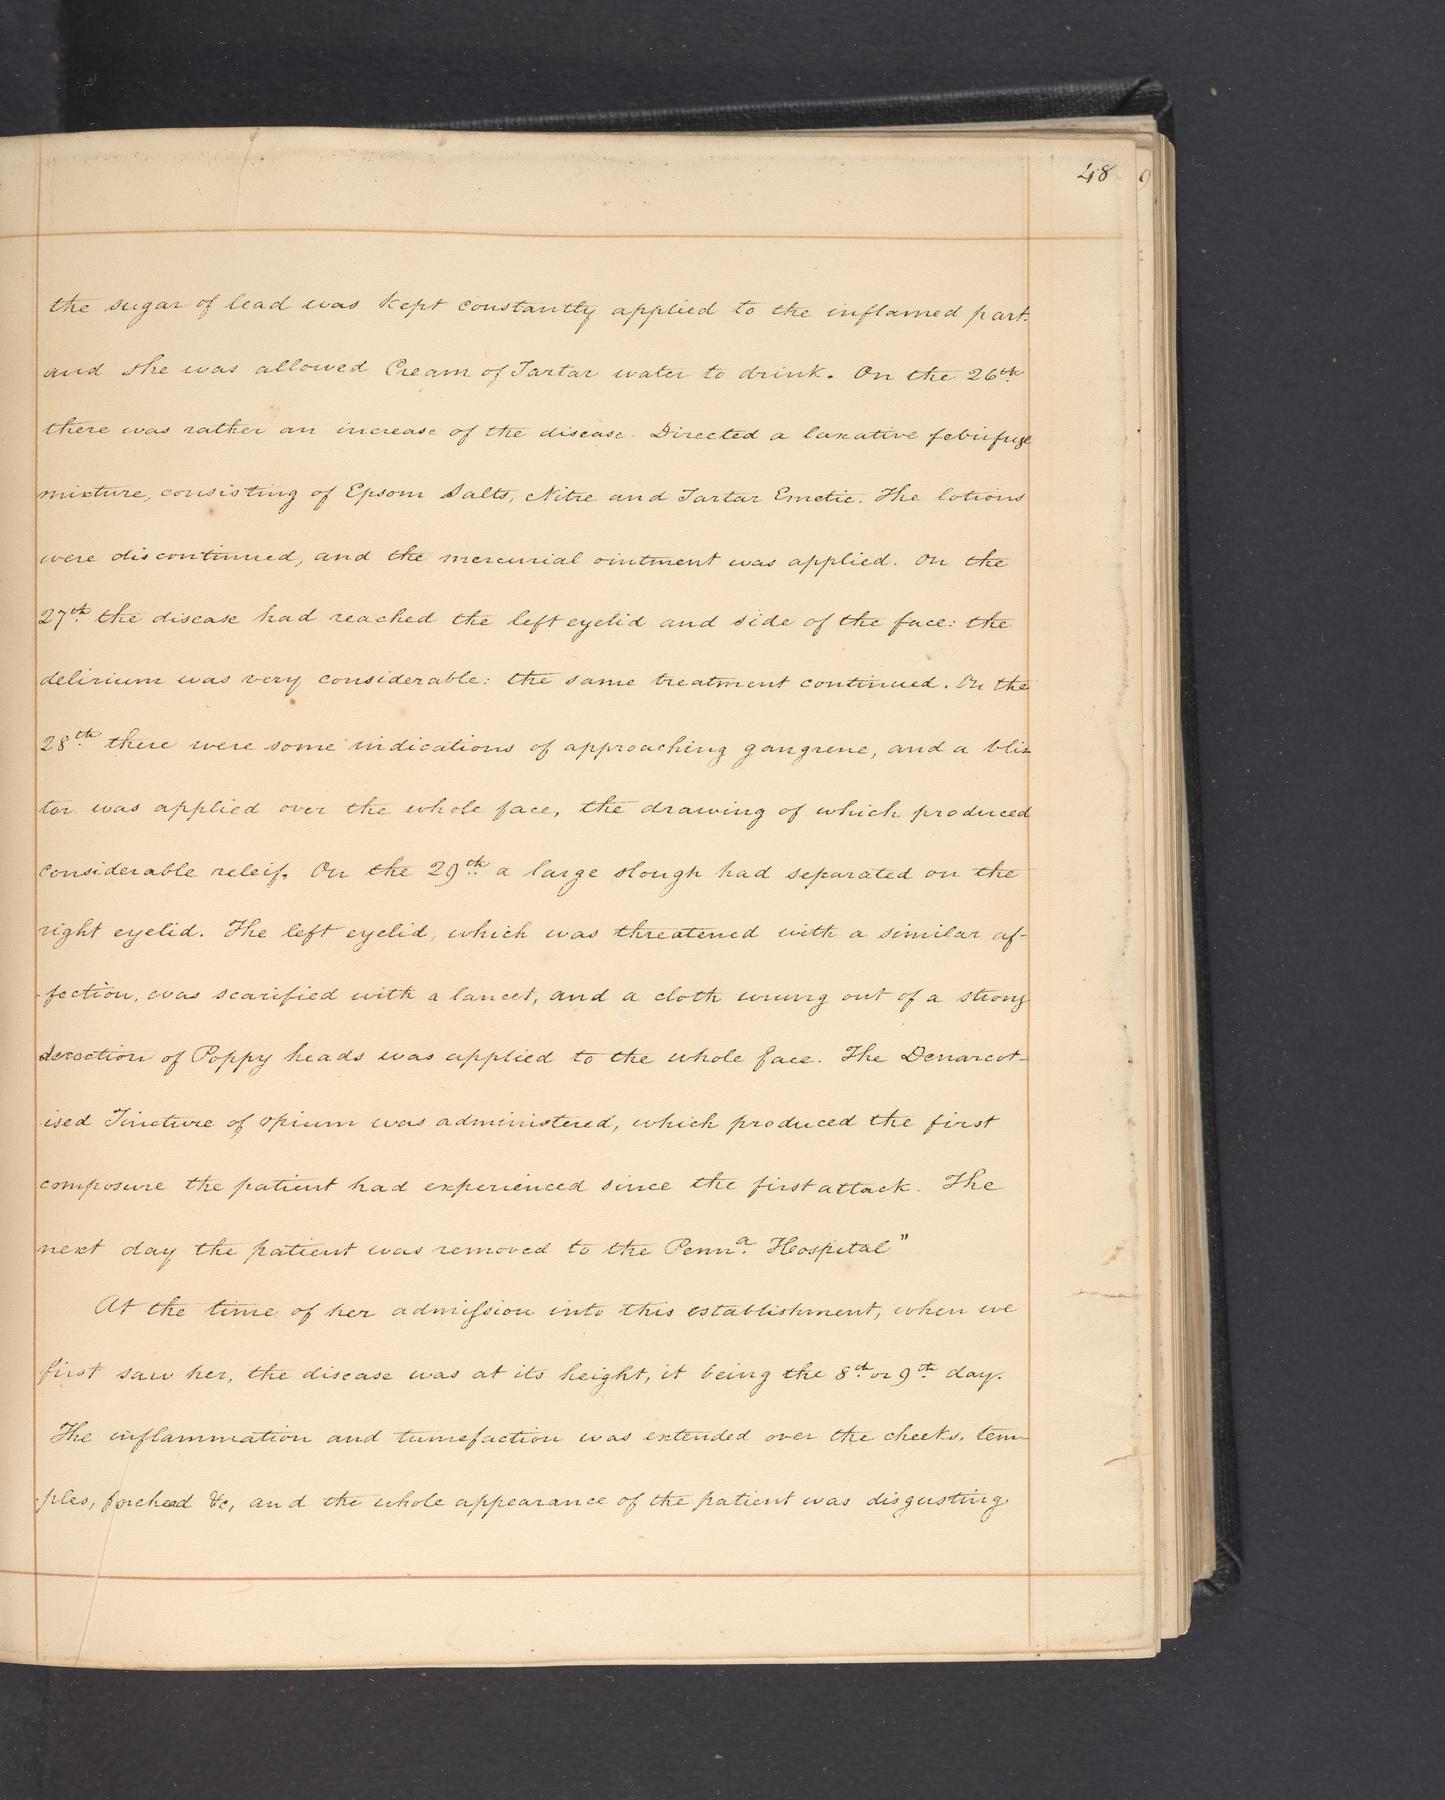 48
the sugar of lead was kept constantly applied to the inflamed part.
and she was allowed Cream of Tartar water to drink. On the 26th.
there was rather an increase of the disease. Directed a laxative febrifuge
mixture, consisting of Epsom Salts, Nitre and Tartar Emetic. The lotions
were discontinued, and the mercurial ointment was applied. On the
27th. the disease had reached the left eyelid and side of the face: the
delirium was very considerable: the same treatment continued. On the
28th. there were some indications of approaching gangrene, and a blis
ter was applied over the whole face, the drawing of which produced
considerable releif. On the 29th. a large slough had separated on the
right eyelid. The left eyelid, which was threatened with a similar af-
-fection, was scarified with a lancet, and a cloth wrung out of a strong
decoction of Poppy heads was applied to the whole face. The Denarcot-
ised Tincture of opium was administered, which produced the first
composure the patient had experienced since the first attack. The
next day the patient was removed to the Penna. Hospital"
At the time of her admission into this establishment, when we
first saw her, the disease was at its height, it being the 8th. or 9th. day.
The inflammation and tumefaction was extended over the cheeks, tem-
-ples, forehead &c, and the whole appearance of the patient was disgusting.